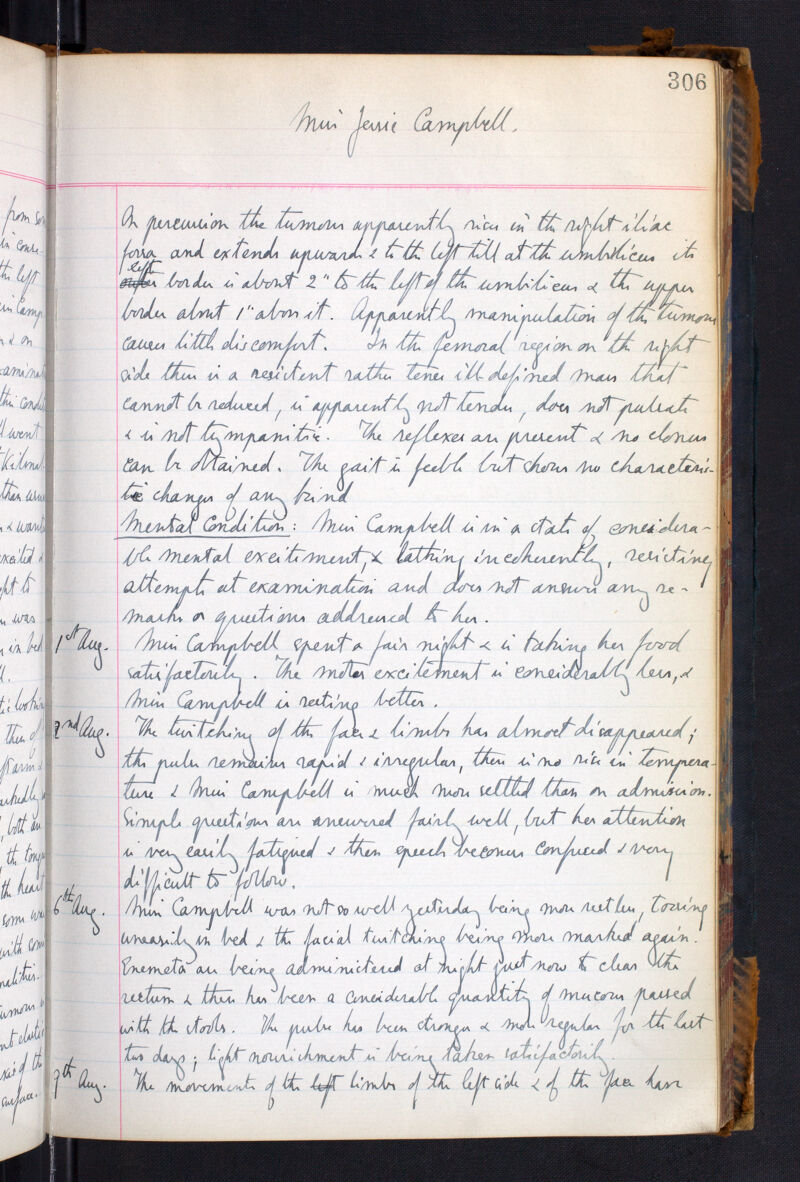 306
Miss Jessie Campbell.
On percussion the tumour apparently rises in the right iliac
fossa and extends upwards & to the left till at the umbilicus its
left border is about 2" to the left of the umbilicus & the upper
border about 1" above it. Apparently manipulation of the tumour
causes little discomfort. In the femoral region on the right
side there is a resistent rather tense ill defined mass that
cannot be reduced, is apparently not tender, does not pulsate
& is not tympanitic. The reflexes are present & no clonus
can be obtained. The gait is feeble but shows no characteris-
tic changes of any kind
Mental Condition: Miss Campbell is in a state of considera-
ble mental excitement, & talking incoherently, resisting
attempts at examination and does not answer any re-
marks or questions addressed to her.
1st Aug. Miss Campbell spent a fair night & is taking her food
satisfactorily. The motor excitement is considerably less, &
Miss Campbell is resting better.
2nd Aug. The twitching of the face & limbs has almost disappeared;
the pulse remains rapid & irregular, there is no rise in tempera-
ture & Miss Campbell is much more settled than on admission.
Simple questions are answered fairly well, but her attention
is very easily fatigued & then speech becomes confused & very
difficult to follow.
6th Aug. Miss Campbell was not so well yesterday being more restless, tossing
uneasily in bed & the facial twitching being more marked again.
Enemeta are being administered at night just now to clear the
rectum & there has been a considerable quantity of mucous passed
with the stools. The pulse has been stronger & more regular for the last
two days; light nourishment is being taken satisfactorily.
7th Aug. The movements of the left limbs of the left side & of the face have